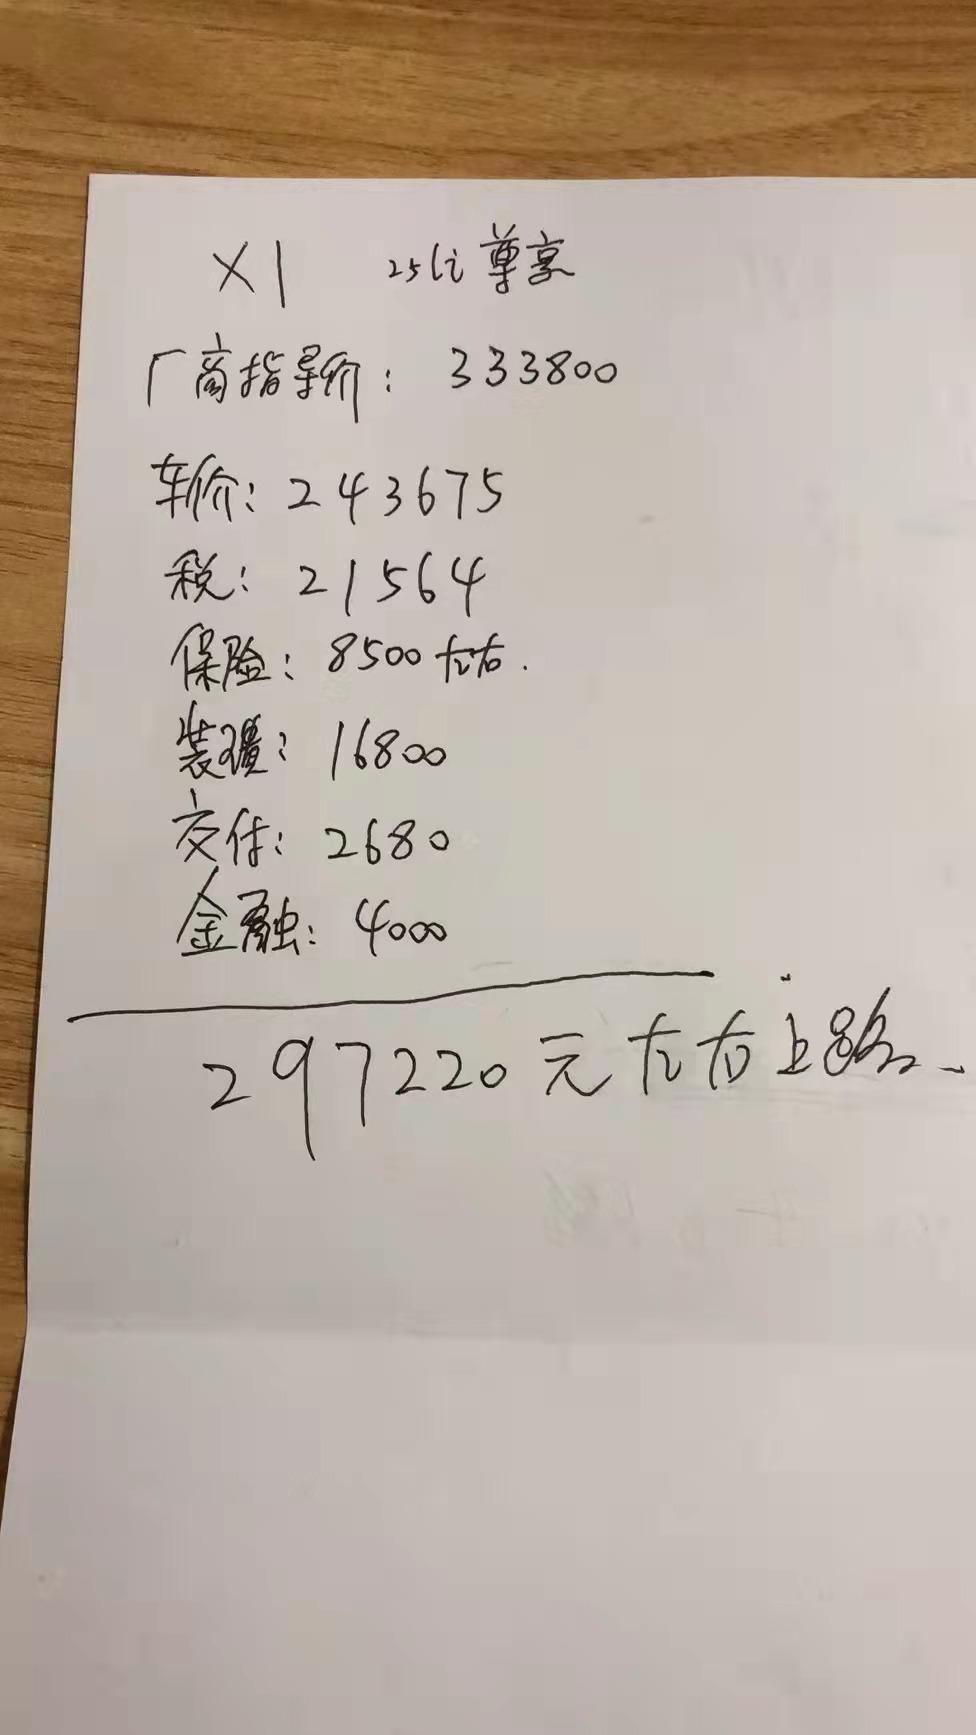 X1 25Li 尊享
厂商指导价: 333800
车价: 243675
税: 21564
保险: 8500左右.
装璜: 16800
交付: 2680
金融: 4000
297220元左右上路、